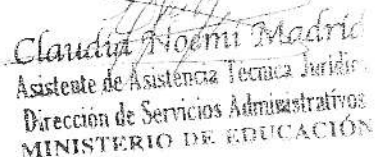 Claudia Noemi Madrid
Asistente de Asistencia Tecnica Juridica
Dirección de Servicios Administrativos
MINISTERIO DE EDUCACIÓN